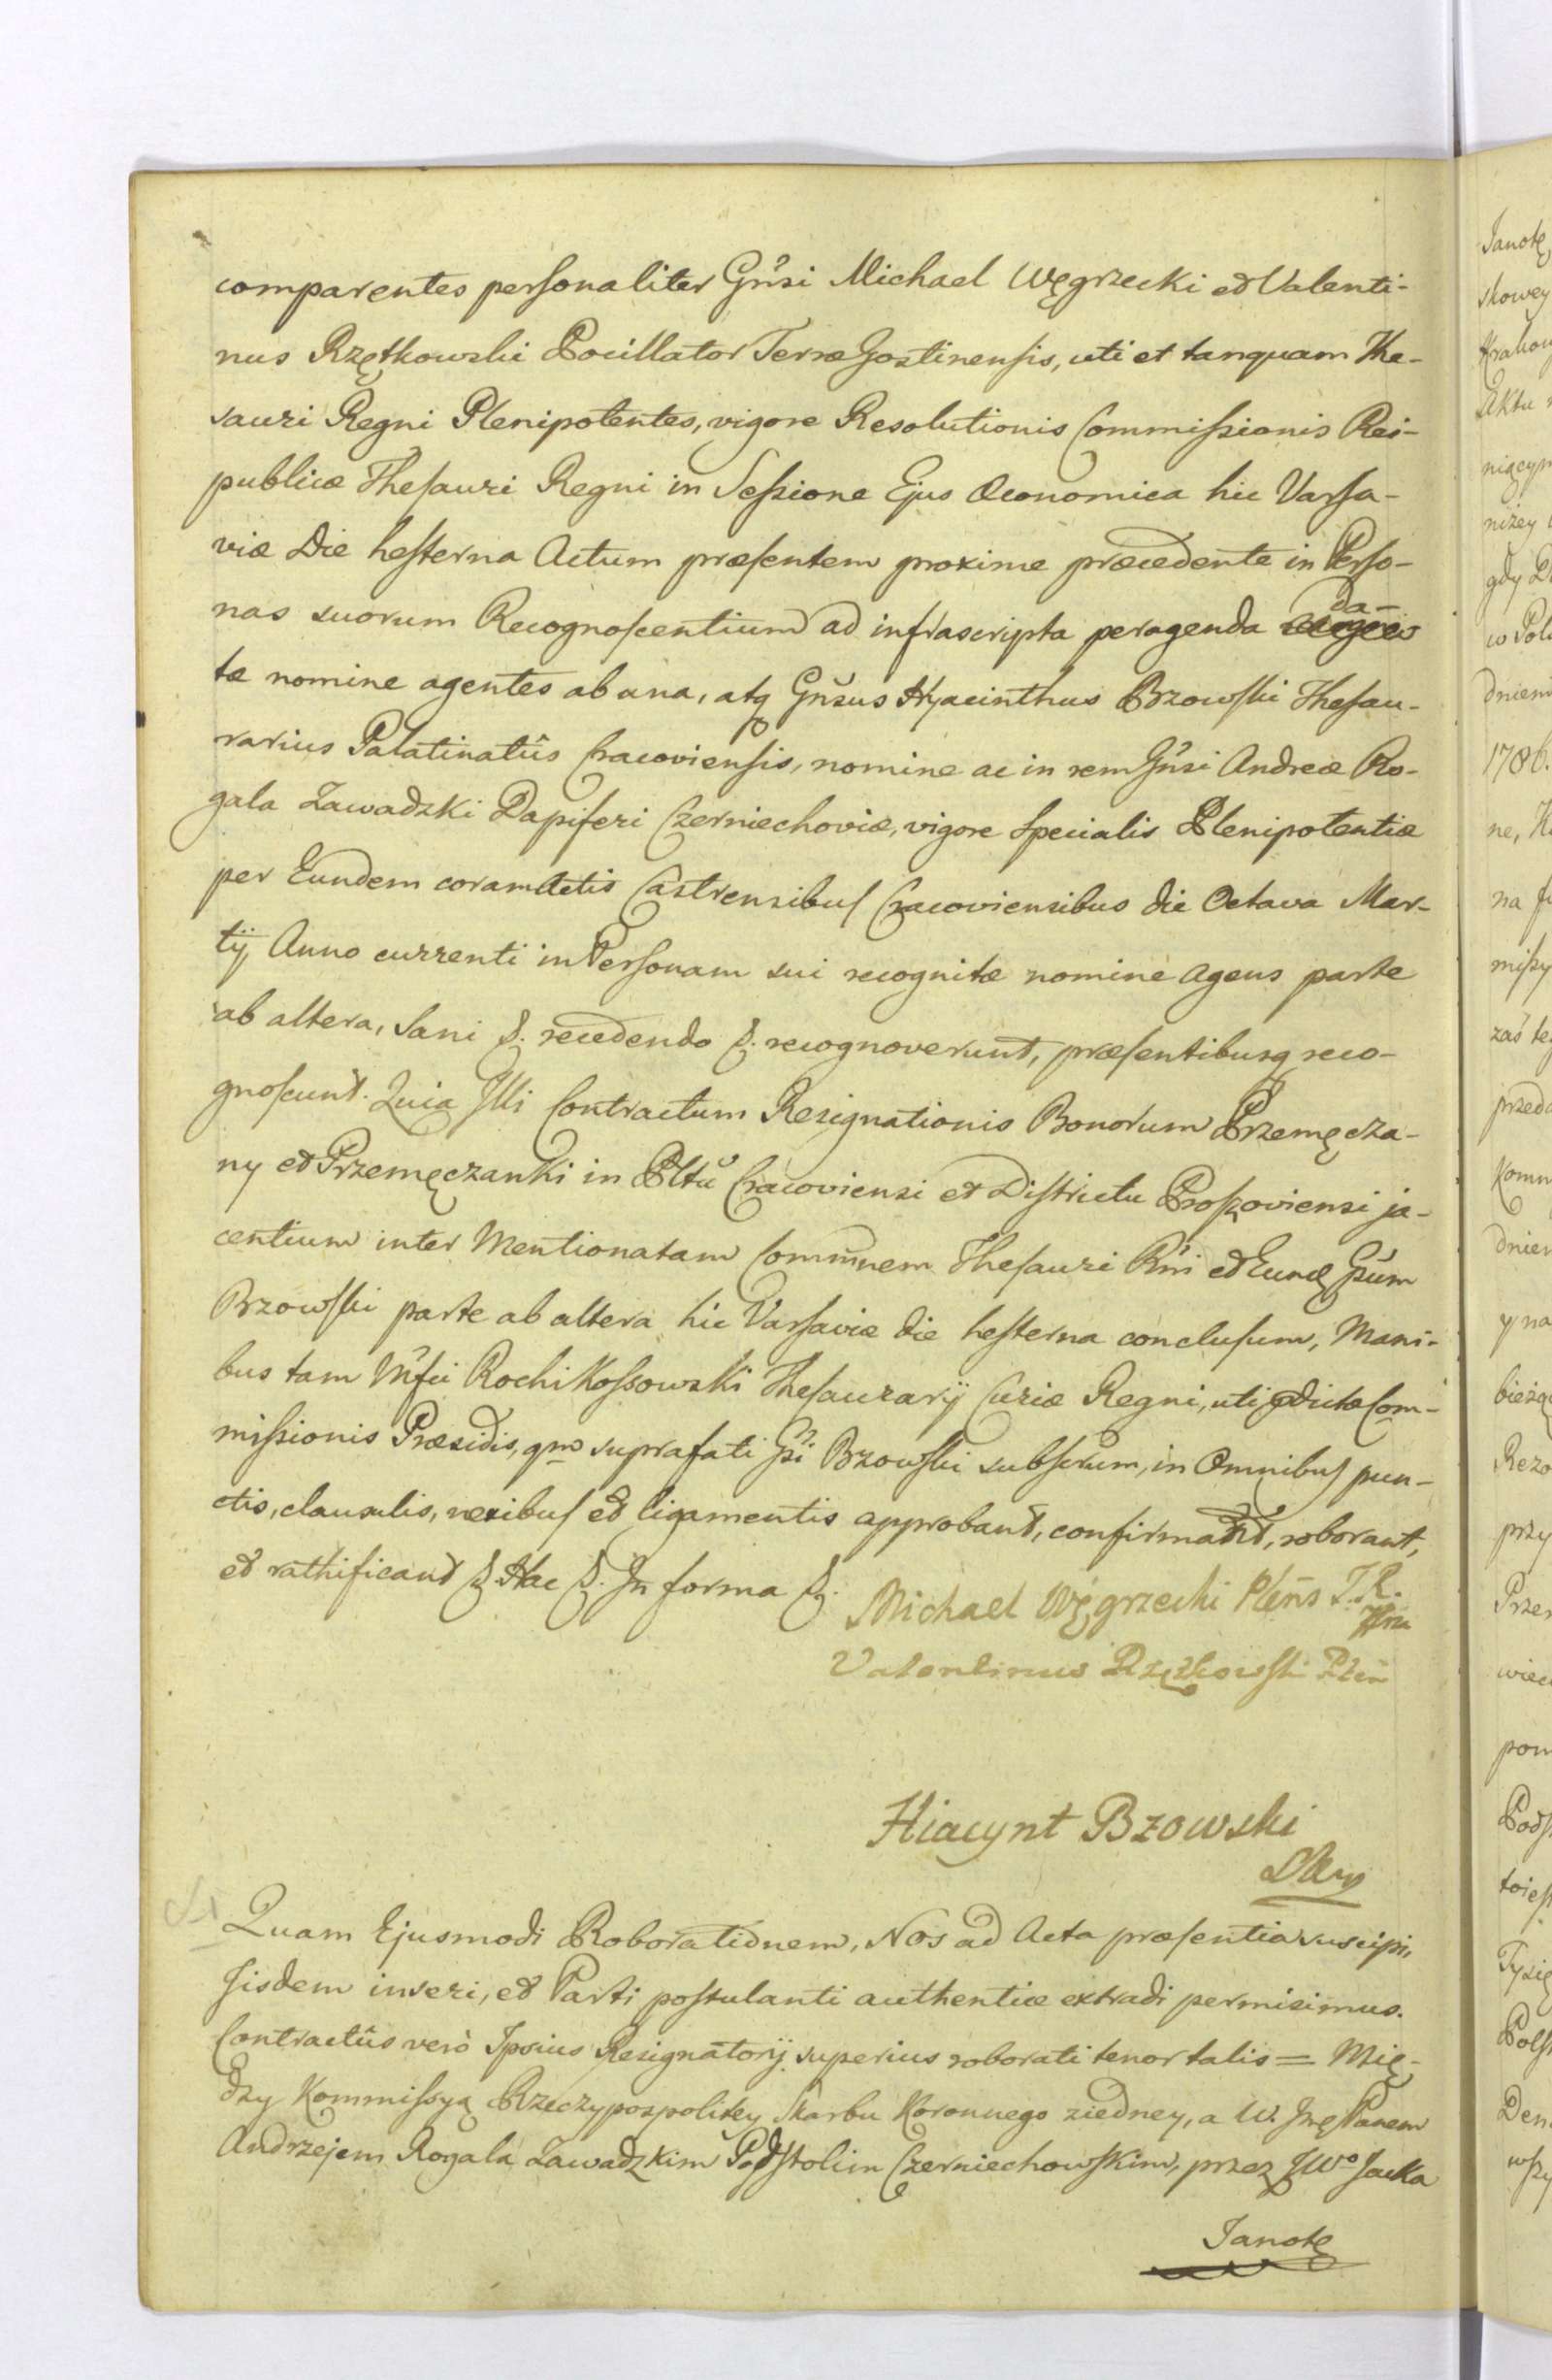 comparentes personaliter Gnŝi Michael Węgrzecki et Valenti-
nus Rzętkowski Pocillator Terræ Gostinensis, uti et tanquam The-
sauri Regni Plenipotentes, vigore Resolutionis Commissionis Rei-
publicæ Thesauri Regni in Sessione Ejus Oeconomica hic Varsa-
viæ Die hesterna Actum præsentem proxime præcedente in Perso-
nas suorum Recognoscentium ad infrascripta peragenda da-
tæ nomine agentes ab una, atq Gnŝus Hyacinthus Bzowski Thesau-
rarius Palatinatûs Cracoviensis, nomine ac in rem Gnŝi Andreæ Ro-
gala Zawadzki Dapiferi Czerniechoviæ, vigore Specialis Plenipotentiæ
per Eundem coram Actis Castrensibus Cracoviensibus die Octava Mar-
tij Anno currenti in Personam sui recognitæ nomine agens parte
ab altera, Sani &. recedendo &. recognoverunt, præsentibusq reco-
gnoscunt. Quia Illi Contractum Resignationis Bonorum Przemęcza-
ny et Przemęczanki in Pltŭ Cracoviensi et Districtu Proszoviensi ja-
centium inter Mentionatam Commnem Thesauri Rni et Eund Gsum
Bzowski parte ab altera hic Varsaviæ die hesterna conclusum, Mani-
bus tam Mfci Rochi Kossowski Thesaurarij Curiæ Regni, uti Dictæ Com-
missionis Præsidis, qm suprafati Gsi Bzowski subscrum, in Omnibus pun-
ctis, clausulis, nexibus et ligamentis approbant, confirmant, roborant,
et rathificant &. Hac &. In forma &.
Michael Węgrzecki Pleñs T. R.
Valentinus Rzętkowski Plen
Hiacynt Bzowski
Quam Ejusmodi Roborationem, Nos ad Acta præsentia suscipi,
Iisdem inseri, et Parti postulanti authentice extradi permisimus.
Contractûs verò Ipsius Resignatorij superius roborati tenor talis = Mię-
dzy Kommissyą Rzeczypospolitey Skarbu Koronnego z iedney, a W. Jmę Panem
Andrzejem Rogala Zawadzkim Podstolim Czerniechowskim, przez JWo Jacka
Janotę
Janotę
skowey
Krakow
Aktu
nięcym
niżey
gdy
w Pol
dnien
1786.
ne,
na
missy
zaś te
przed
Komm
dnien
y na
bieżąc
Rezo
przy
Przem
wiec
pom
Pods
toiest
Tysię
Polsk
Den
wszy